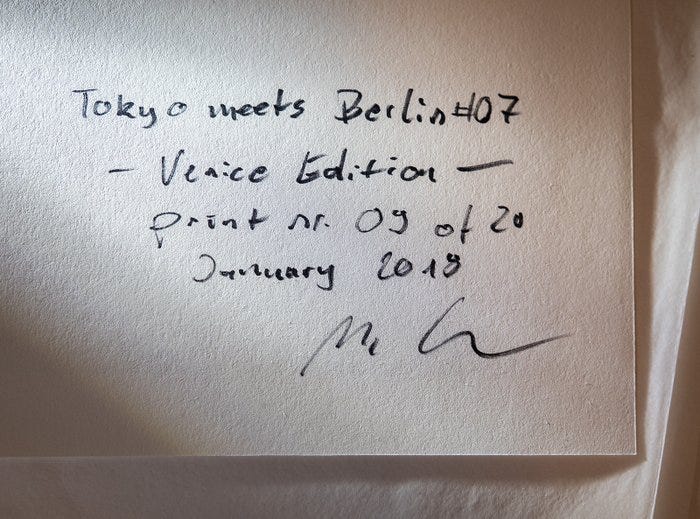 Tokyo meets Berlin #07
- Venice Edition -
print nr. 09 of 20
January 2018